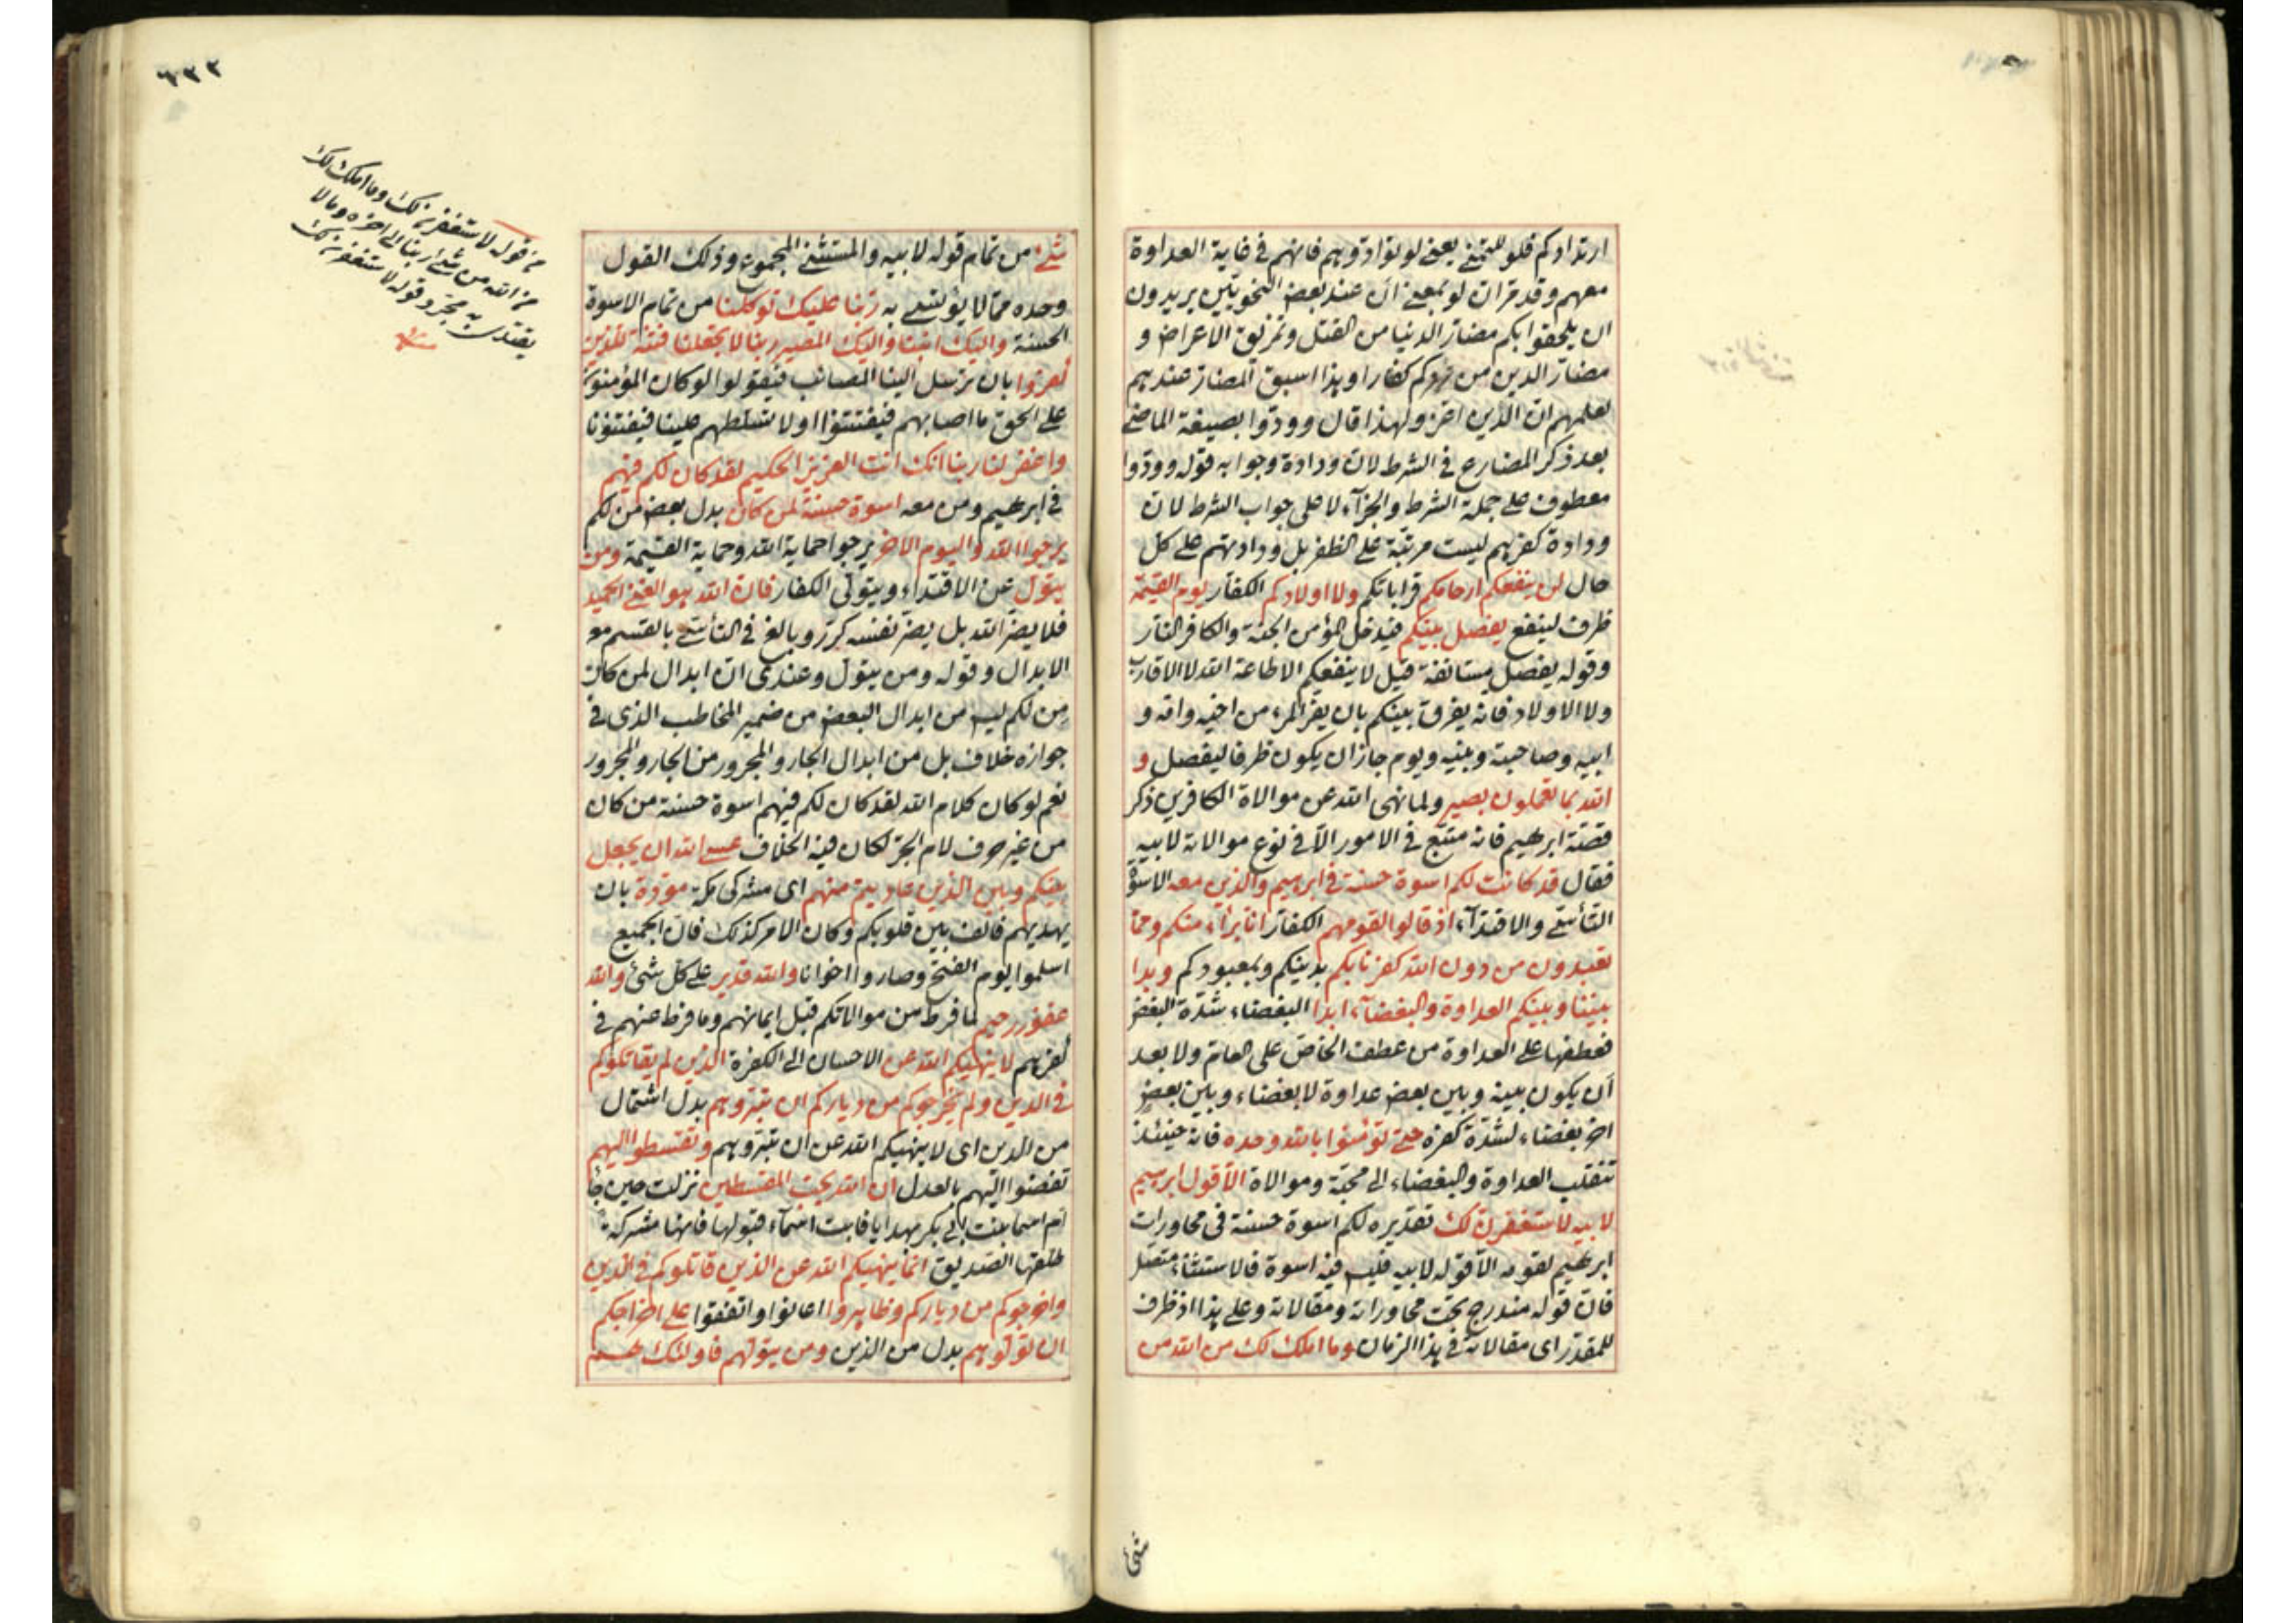 ارتدادكم فلو للتمني يعني لو توادوهم فانهم في غاية العداوة
معهم وقد مر ان لو بمعنى ان عند بعض النحويين يريدون
ان يلحقوا بكم مضار الدنيا من القتل وتمزيق الاعراض و
مضار الدين من ردكم كفارا وهذا اسبق المضار عندهم
لعلمهم ان الدين اعز ولهذا قال وودوا بصيغة الماضي
بعد ذكر المضارع في الشرط لان ودادة وجوابه قوله وودوا
معطوف على جملة الشرط والجزآء لا على جواب الشرط لان
ودادة كفرهم ليست مرتبة على الظفر بل ودادتهم على كل
حال لن ينفعكم ارحامكم قراباتكم ولا اولادكم الكفار يوم القيمة
ظرف لينفع يفصل بينكم فيدخل المؤمن الجنة والكافر النار
وقوله يفصل مستانفة قيل لا ينفعكم الا طاعة الله لا الاقارب
ولا الاولاد فانه يفرق بينكم بان يفر المرء من اخيه وامه و
ابيه وصاحبته وبنيه ويوم جاز ان يكون ظرفا ليفصل و
الله بما تعملون بصير ولما نهى الله عن موالاة الكافرين ذكر
قصة ابرهيم فانه متبع في الامور الا في نوع موالاته لابيه
فقال قد كانت لكم اسوة حسنة في ابرهيم والذين معه الاسوة
التأسي والاقتدآء اذ قالوا لقومهم الكفار انا برآء منكم ومما
تعبدون من دون الله كفرنا بكم بدينكم وبمعبودكم وبدا
بيننا وبينكم العداوة والبغضآء ابدا البغضاء شدة البغض
فعطفها على العداوة من عطف الخاص على العام ولا بعد
ان يكون بينه وبين بعض عداوة لا بغضاء وبين بعض
اخر بغضاء لشدة كفره حتى تؤمنوا بالله وحده فانه حينئذ
تنقلب العداوة والبغضاء الى محبة وموالاة الا قول ابرهيم
لابيه لاستغفرن لك تقديره لكم اسوة حسنة في محاورات
ابرهيم لقومه الا قوله لابيه فليس فيه اسوة فالاستثناء متصل
فان قوله مندرج تحت محاوراته ومقالاته وعلى هذا اذ ظرف
للمقدر اى مقالاته في هذا الزمان وما املك لك من الله من
شئ
٦٣٣
شئ من تمام قوله لابيه والمستثنى المجموع وذلك القول
وحده مما لا يؤتسى به ربنا عليك توكلنا من تمام الاسوة
الحسنة واليك انبنا واليك المصير ربنا لا تجعلنا فتنة للذين
كفروا بان ترسل الينا المصائب فيقولوا لو كان المؤمنون
على الحق ما اصابهم فيفتتنوا او لا تسلطهم علينا فيفتنونا
واغفر لنا ربنا انك انت العزيز الحكيم لقد كان لكم فيهم
في ابرهيم ومن معه اسوة حسنة لمن كان بدل بعض من لكم
يرجوا الله واليوم الاخر يرجوا حماية الله وحماية القيمة ومن
يتول عن الاقتداء ويتولى الكفار فان الله هو الغني الحميد
فلا يضر الله بل يضر نفسه كرر وبالغ في التأسي بالقسم مع
الابدال وقوله ومن يتول وعندى ان ابدال لمن كان
من لكم ليس من ابدال البعض من ضمير المخاطب الذى في
جوازه خلاف بل من ابدال الجار والمجرور من الجار والمجرور
نعم لو كان كلام الله لقد كان لكم فيهم اسوة حسنة من كان
من غير حرف لام الجر لكان فيه الخلاف عسى الله ان يجعل
بينكم وبين الذين عاديتم منهم اى مشركى مكة مودة بان
يهديهم فالف بين قلوبكم وكان الامر كذلك فان الجميع
اسلموا يوم الفتح وصاروا اخوانا والله قدير على كل شئ والله
غفور رحيم لما فرط من موالاتكم قبل ايمانهم وما فرط منهم في
كفرهم لا ينهيكم الله عن الاحسان الى الكفرة الذين لم يقاتلوكم
في الدين ولم يخرجوكم من دياركم ان تبروهم بدل اشتمال
من الذين اى لا ينهيكم الله عن ان تبروهم وتقسطوا اليهم
تفضوا اليهم بالعدل ان الله يحب المقسطين نزلت حين جاء
ام اسما بنت ابى بكر بهدايا فابت اسمآء قبولها فانها مشركة
طلقها الصديق انما ينهيكم الله عن الذين قاتلوكم في الدين
واخرجوكم من دياركم وظاهروا اعانوا واتفقوا على اخراجكم
ان تولوهم بدل من الذين ومن يتولهم فاولئك هم
قوله لاستغفرن لك وما املك لك
من الله من شئ ربنا الى اخره وما لا
يقتدى به مجرد قوله لاستغفرن لك